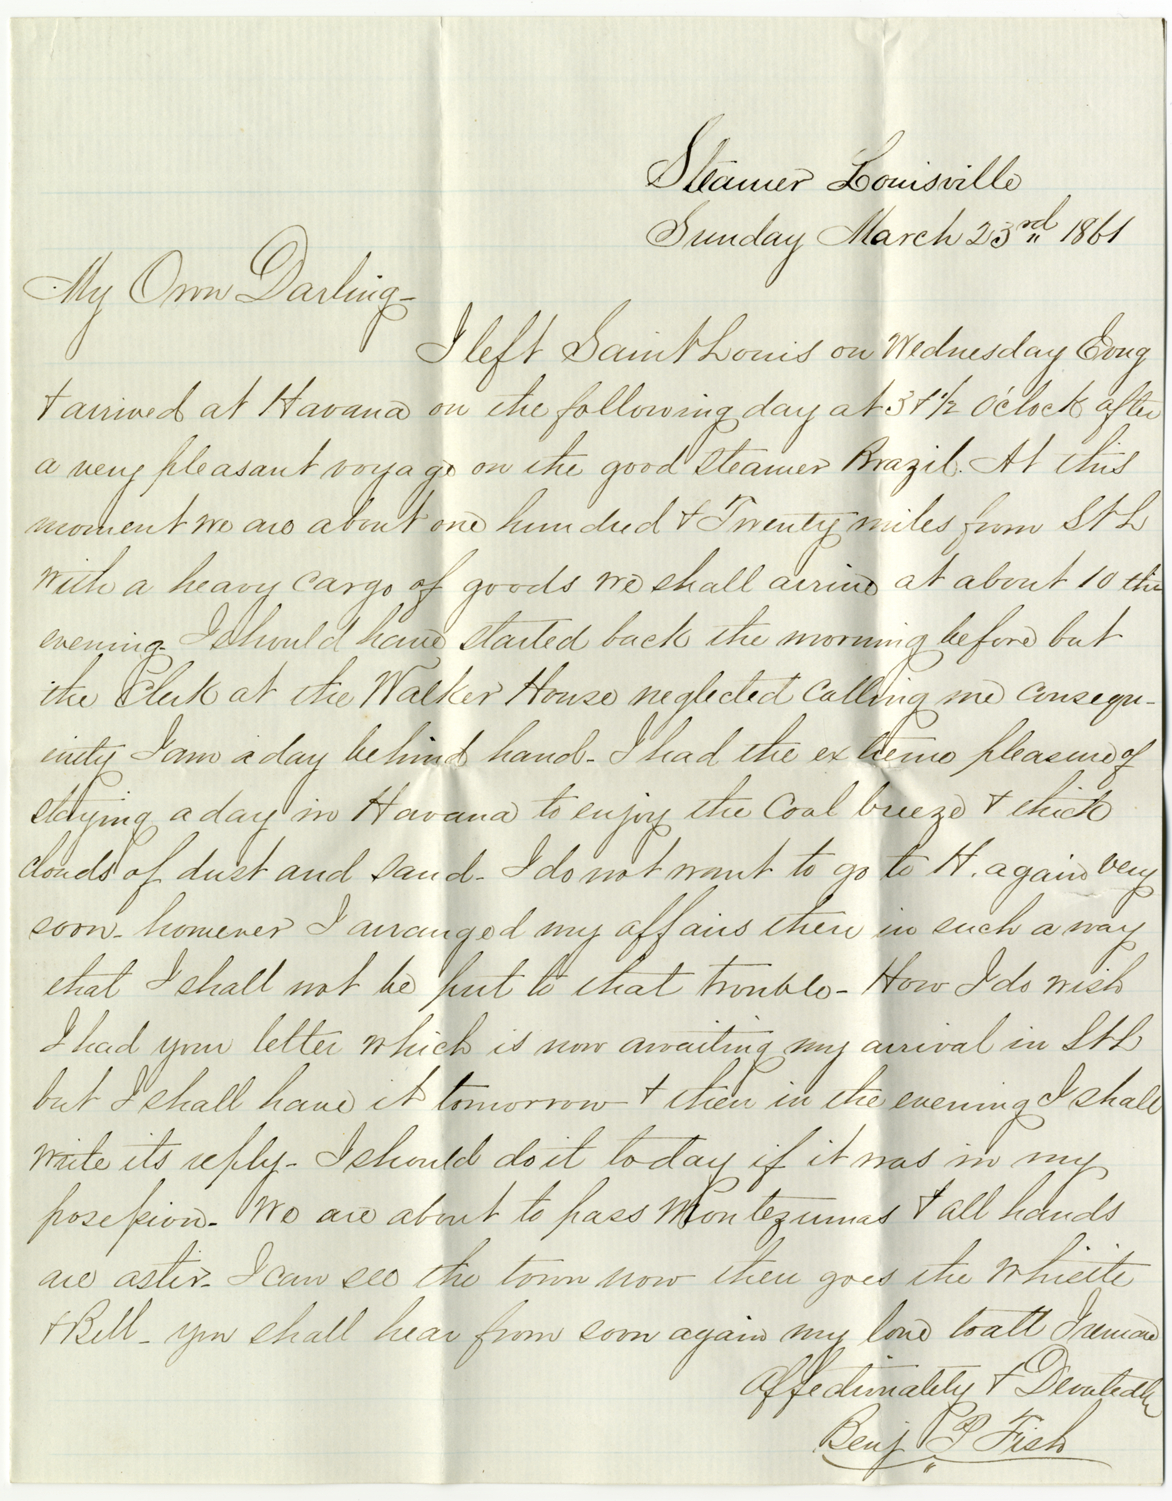 Steamer Louisville
Sunday March 23rd 1861
My Own Darling-
I left Saint Louis on Wednesday Evng
& arrived at Havana on the following day at 3 & 1/2 O'clock after
a very pleasant voyage on the good Steamer Brazil. At this
moment we are about one hundred & Twenty miles from St L
with a heavy cargo of goods we shall arrive at about 10 this
evening. I should have started back the morning before but
the Clerk at the Walker House neglected calling me consequ-
intly I am a day behind hand- I had the extreme pleasure of
staying a day in Havana to enjoy the Coal breeze & thick
clouds of dust and sand- I do not want to go to H. again very
soon- however I arranged my affairs there in such a way
that I shall not be put to that trouble- How I do wish
I had your letter which is now awaiting my arrival in St L
but I shall have it tomorrow & then in the evening I shall
write its reply- I should do it today if it was in my
posession- We are about to pass Montezumas & all hands
are astir- I can see the town now there goes the whistle
& Bell- you shall hear from soon again my love to all I remain
Affectionately & Devotedly
Benj P Fish